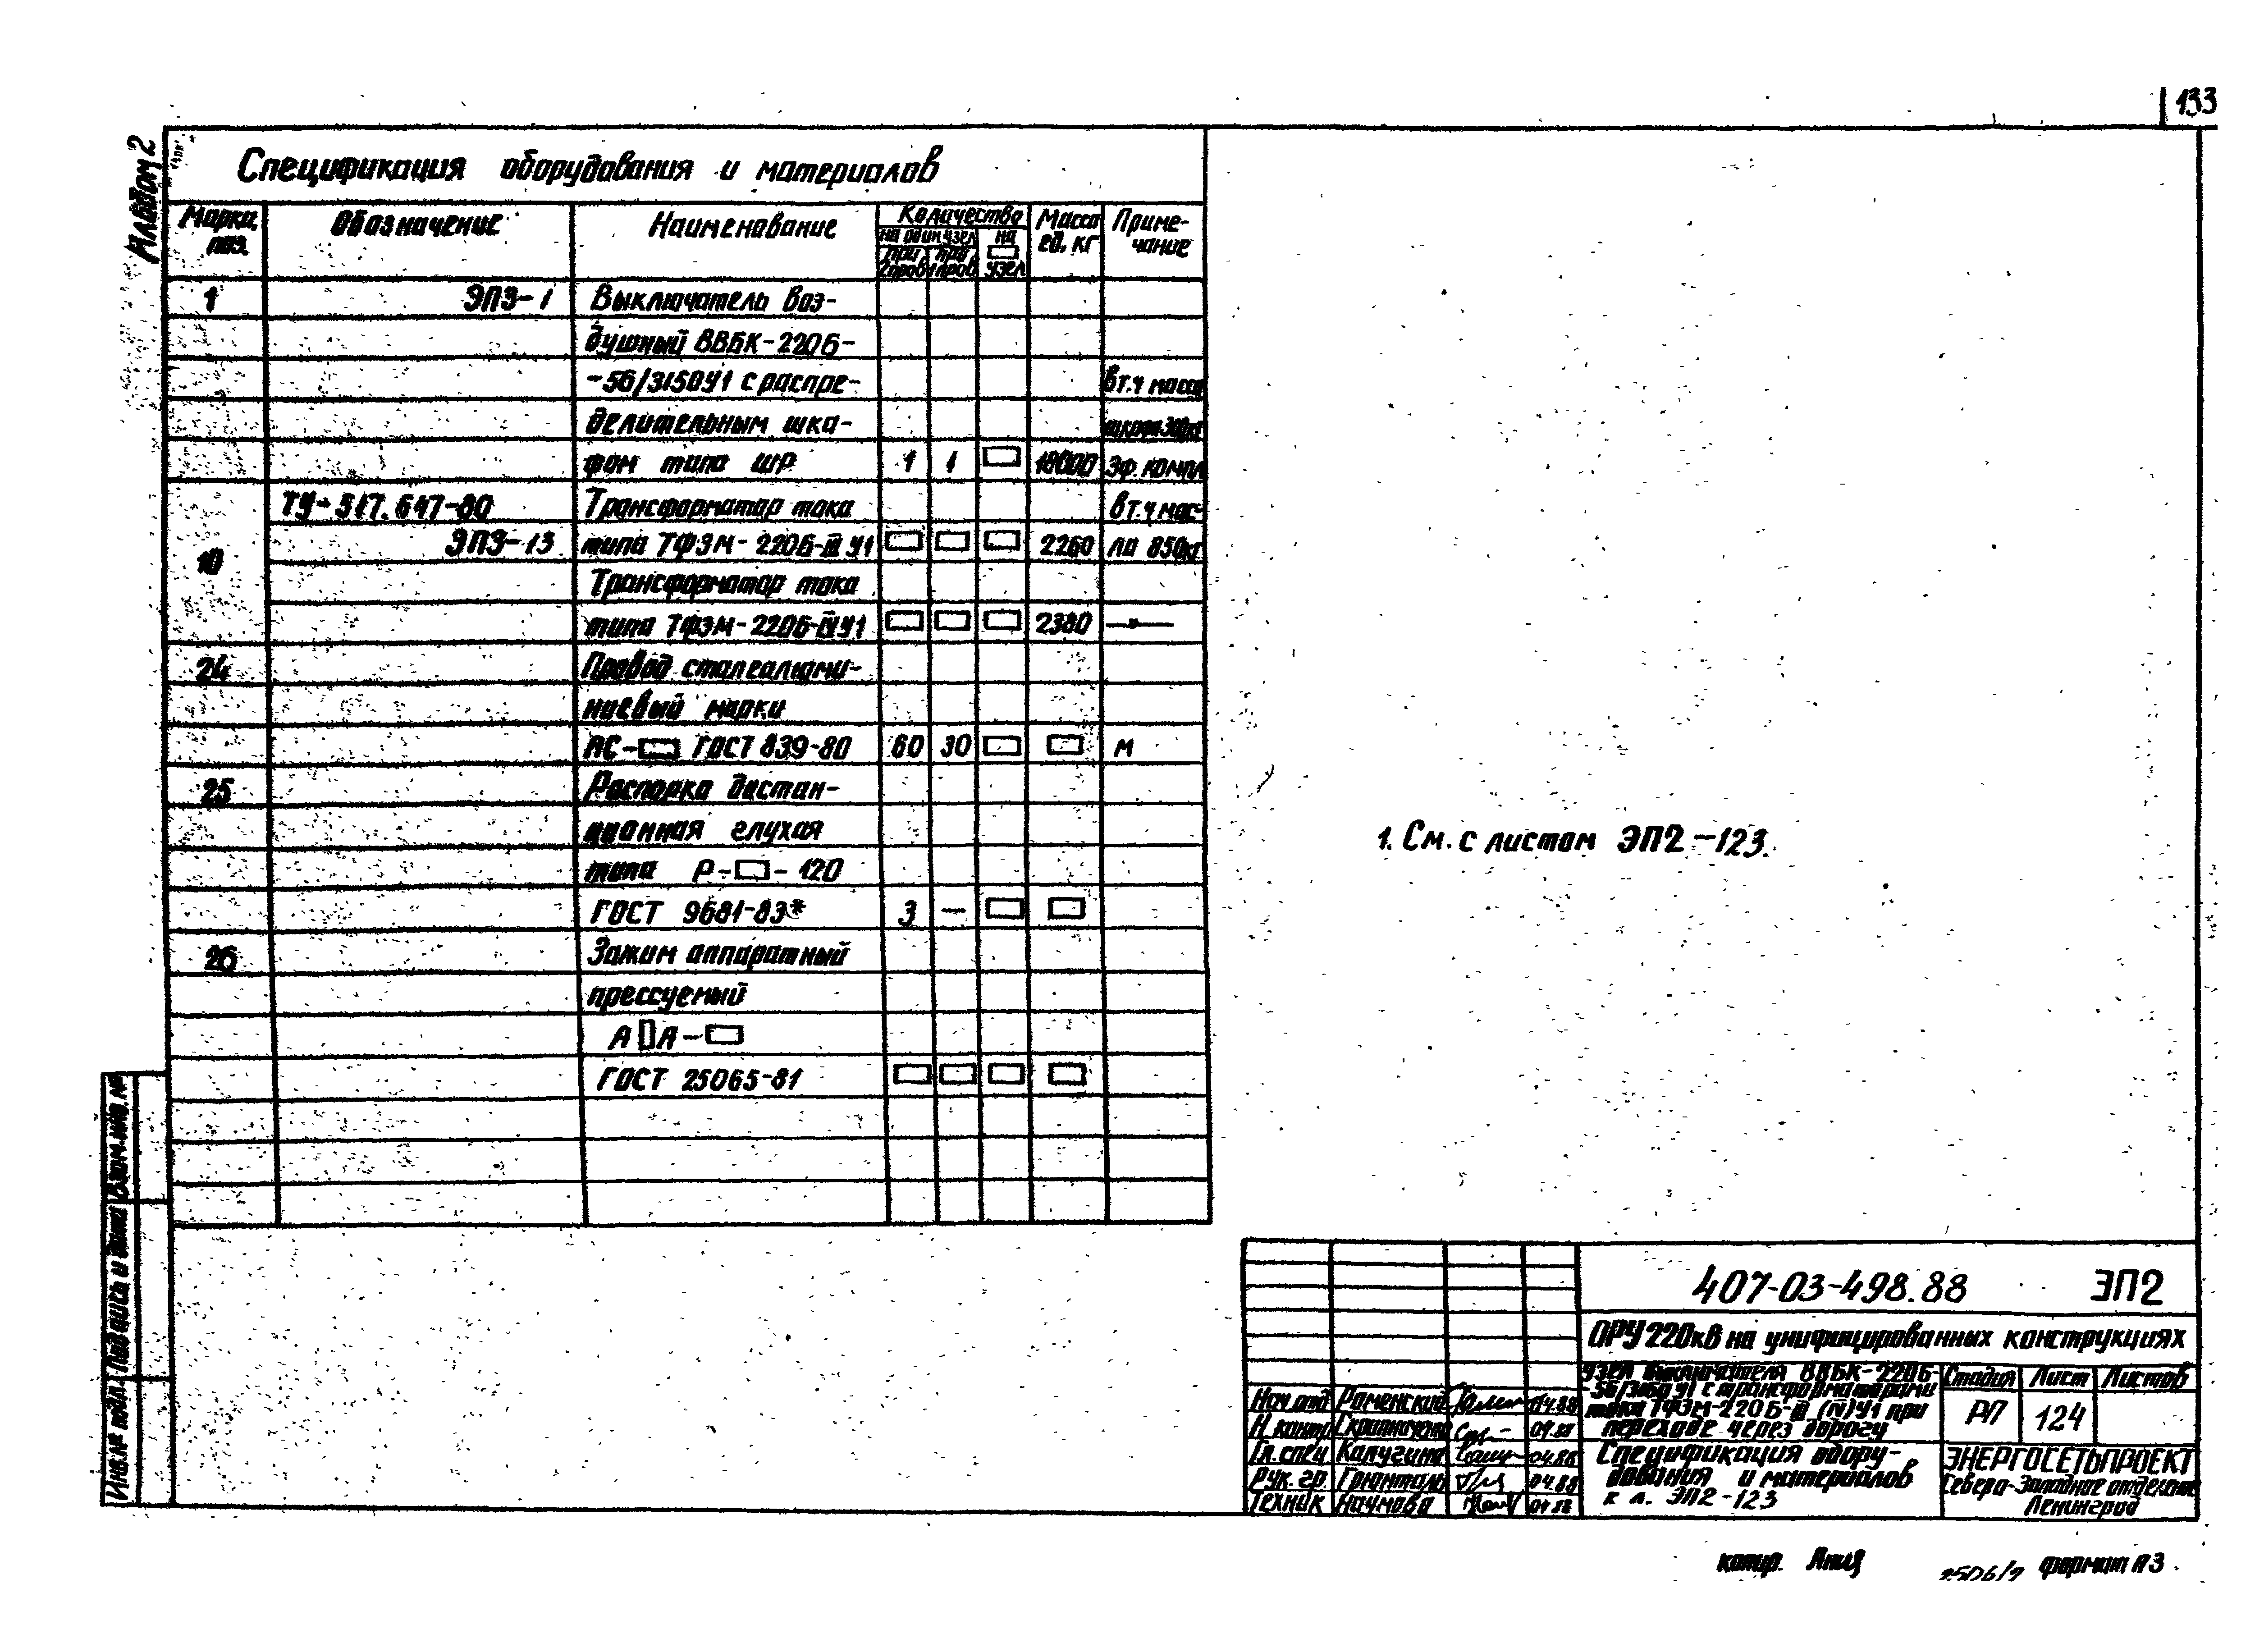 133
Альбом 2
Спецификация оборудования и материалов
Марка, поз.
Обозначение
Наименование
Количество
на один узел
при 2 пров
при 1 пров
на □ узел
Масса ед. кг
Приме-
чание
1 ЭП3-1 Выключатель воз-
душный ВВБК-220Б-
-56/3150У1 с распре- В т.ч масса
делительным шка- шкафа 300кг
фом типа ШР 1 1 □ 18000 3ф. компл
10
ТУ- 517. 647-80 Трансформатор тока В т.ч мас-
ЭП3-13 типа ТФЗМ- 220Б-III У1 □ □ □ 2260 ла 850кг
Трансформатор тока
типа ТФЗМ- 220Б-IV У1 □ □ □ 2380 —"—
24 Провод сталеалюми-
ниевый марки
АС-□ ГОСТ 839-80 60 30 □ □ м
25 Распорка дистан-
ционная глухая
типа Р-□- 120
ГОСТ 9681-83* 3 — □ □
26 Зажим аппаратный
прессуемый
А□А-□
ГОСТ 25065-81 □ □ □ □
1. См. с листом ЭП2-123.
Взам. инв. №
Подпись и дата
Инв. № подл.
407-03-498.88 ЭП2
ОРУ 220кВ на унифицированных конструкциях
Узел выключателя ВВБК-220Б-
-56/3150 У1 с трансформаторами
тока ТФЗМ-220Б-III (IV) У1 при
переходе через дорогу
Стадия Лист Листов
РП 124
Спецификация обору-
дования и материалов
к л. ЭП2-123
ЭНЕРГОСЕТЬПРОЕКТ
Северо-Западное отделение
Ленинград
Нач. отд Роменский 04.88
Н. контр 04.88
Гл. спец Калугина 04.88
Рук. гр. Грюнталь 04.88
Техник Наумова 04.88
копир.
формат А3